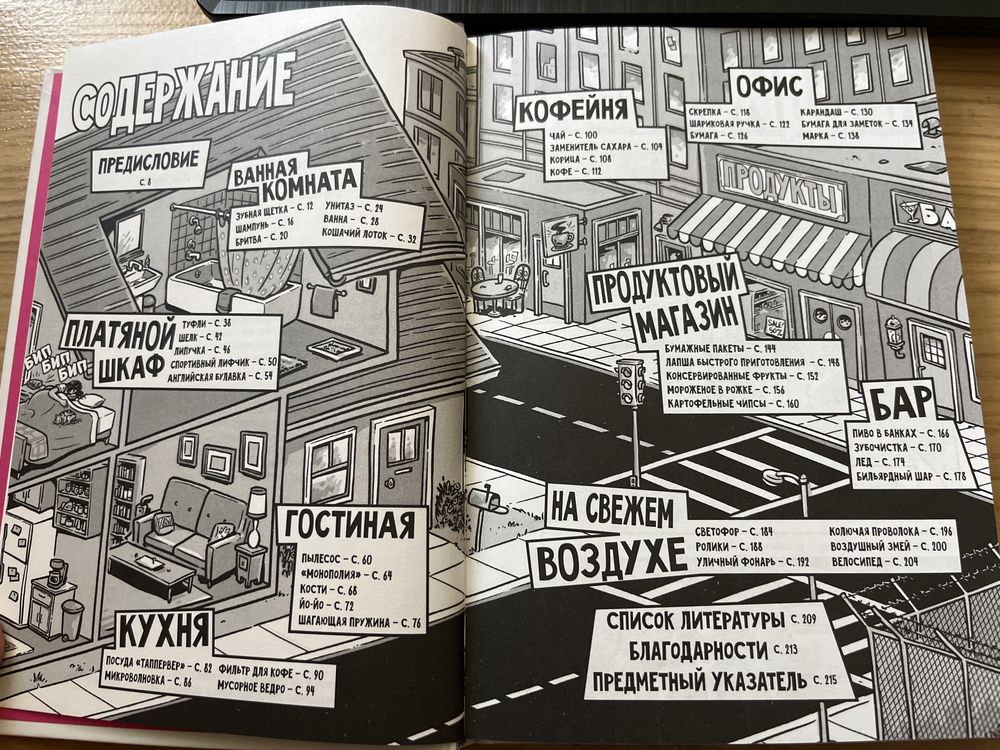 СОДЕРЖАНИЕ
ПРЕДИСЛОВИЕ
С. 8
ВАННАЯ
КОМНАТА
ЗУБНАЯ ЩЕТКА – С. 12
ШАМПУНЬ – С. 16
БРИТВА – С. 20
УНИТАЗ – С. 24
ВАННА – С. 28
КОШАЧИЙ ЛОТОК – С. 32
ПЛАТЯНОЙ
ШКАФ
ТУФЛИ – С. 38
ШЕЛК – С. 42
ЛИПУЧКА – С. 46
СПОРТИВНЫЙ ЛИФЧИК – С. 50
АНГЛИЙСКАЯ БУЛАВКА – С. 54
БИП!
БИП!
БИП!
ГОСТИНАЯ
ПЫЛЕСОС – С. 60
«МОНОПОЛИЯ» – С. 64
КОСТИ – С. 68
ЙО-ЙО – С. 72
ШАГАЮЩАЯ ПРУЖИНА – С. 76
КУХНЯ
ПОСУДА «ТАППЕРВЕР» – С. 82
МИКРОВОЛНОВКА – С. 86
ФИЛЬТР ДЛЯ КОФЕ – С. 90
МУСОРНОЕ ВЕДРО – С. 94
КОФЕЙНЯ
ЧАЙ – С. 100
ЗАМЕНИТЕЛЬ САХАРА – С. 104
КОРИЦА – С. 108
КОФЕ – С. 112
ОФИС
СКРЕПКА – С. 118
ШАРИКОВАЯ РУЧКА – С. 122
БУМАГА – С. 126
КАРАНДАШ – С. 130
БУМАГА ДЛЯ ЗАМЕТОК – С. 134
МАРКА – С. 138
ПРОДУКТЫ
БА
ПРОДУКТОВЫЙ
МАГАЗИН
SALE!
50%
БУМАЖНЫЕ ПАКЕТЫ – С. 144
ЛАПША БЫСТРОГО ПРИГОТОВЛЕНИЯ – С. 148
КОНСЕРВИРОВАННЫЕ ФРУКТЫ – С. 152
МОРОЖЕНОЕ В РОЖКЕ – С. 156
КАРТОФЕЛЬНЫЕ ЧИПСЫ – С. 160
БАР
ПИВО В БАНКАХ – С. 166
ЗУБОЧИСТКА – С. 170
ЛЕД – С. 174
БИЛЬЯРДНЫЙ ШАР – С. 178
НА СВЕЖЕМ
ВОЗДУХЕ
СВЕТОФОР – С. 184
РОЛИКИ – С. 188
УЛИЧНЫЙ ФОНАРЬ – С. 192
КОЛЮЧАЯ ПРОВОЛОКА – С. 196
ВОЗДУШНЫЙ ЗМЕЙ – С. 200
ВЕЛОСИПЕД – С. 204
СПИСОК ЛИТЕРАТУРЫ С. 209
БЛАГОДАРНОСТИ С. 213
ПРЕДМЕТНЫЙ УКАЗАТЕЛЬ С. 215